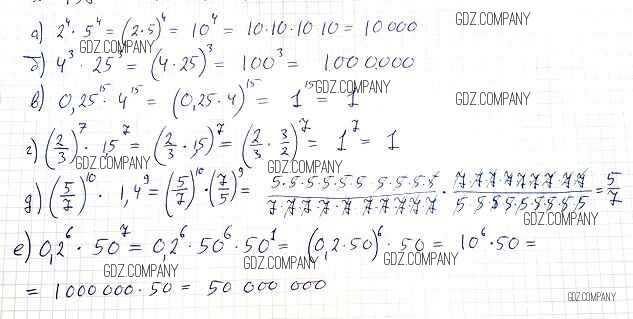 а) 2⁴ · 5⁴ = (2·5)⁴ = 10⁴ = 10·10·10 10 = 10 000 GDZ.COMPANY
GDZ.COMPANY
б) 4³ · 25³ = (4·25)³ = 100³ = 1000000
GDZ.COMPANY
в) 0,25¹⁵ · 4¹⁵ = (0,25·4)¹⁵ = 1¹⁵ = 1 GDZ.COMPANY
г) (2/3)⁷ · 1,5⁷ = (2/3 · 1,5)⁷ = (2/3 · 3/2)⁷ = 1⁷ = 1
GDZ.COMPANY GDZ.COMPANY
д) (5/7)¹⁰ · 1,4⁹ = (5/7)¹⁰ · (7/5)⁹ = 5·5·5·5·5·5 5·5·5·5 / 7·7·7·7·7·7·7·7·7·7 · 7·7·7·7·7·7·7·7·7 / 5·5·5·5·5·5·5·5·5 = 5/7
GDZ.COMPANY
е) 0,2⁶ · 50⁷ = 0,2⁶ · 50⁶ · 50¹ = (0,2·50)⁶ · 50 = 10⁶ · 50 =
GDZ.COMPANY GDZ.COMPANY
= 1000 000 · 50 = 50 000 000
GDZ.COMPANY